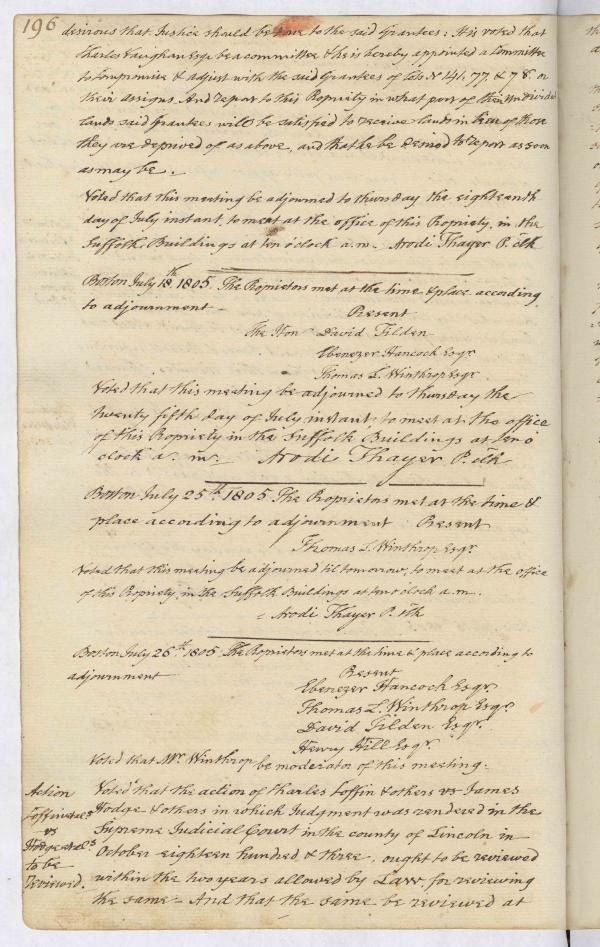 196
desirous that Justice should be done to the said Grantees: It is voted that
Charles Vaughan Esqr be a committee & he is hereby appointed a Committee
to compromise & adjust with the said Grantees of Lots No 41, 77, & 78. or
their assigns. And report to this Propriety in what part of their undivided
lands said Grantees will be satisfied to receive lands in lieu of those
they are deprived of as above, and that he be desired to report as soon
as may be.
Voted that this meeting be adjourned to thursday the eighteenth
day of July instant, to meet at the office of this Propriety, in the
Suffolk Buildings at ten o'clock a.m. Arodi Thayer P. clk
Boston July 18th 1805. The Proprietors met at the time & place according
to adjournment
Present
The Hon David Tilden
Ebenezer Hancock Esqr
Thomas L. Winthrop Esqr
Voted that this meeting be adjourned to thursday the
twenty fifth day of July instant, to meet at the office
of this Propriety in the Suffolk Buildings at ten o
clock a. m. Arodi Thayer P. clk
Boston July 25th 1805 The Proprietors met at the time &
place according to adjournment Present
Thomas L. Winthrop Esqr
Voted that this meeting be adjourned til tomorrow, to meet at the office
of this Propriety, in the Suffolk Buildings at ten o'clock a.m.
Arodi Thayer P. clk
Boston July 26th 1805 The Proprietors met at the time & place according to
adjournment
Present
Ebenezer Hancock Esqr
Thomas L. Winthrop Esqr
David Tilden Esqr
Henry Hill Esqr
Voted that Mr Winthrop be moderator of this meeting.
Action
Coffin & als
vs
Hodge & als
to be
reviewed.
Voted that the action of Charles Coffin & others vs James
Hodge & others in which Judgment was rendered in the
Supreme Judicial Court in the county of Lincoln in
October eighteen hundred & three, ought to be reviewed
within the two years allowed by Law, for reviewing
the same - And that the same be reviewed at